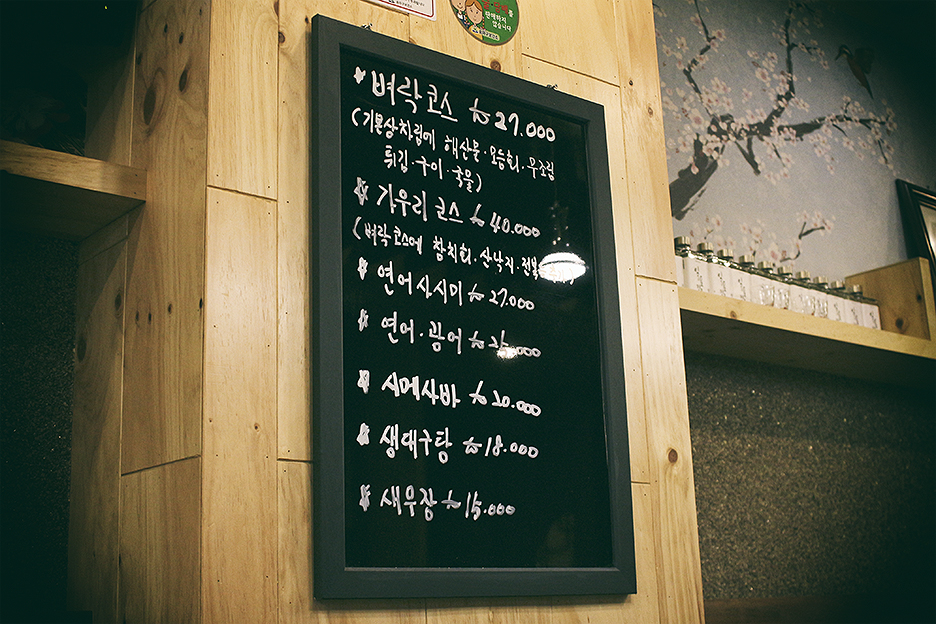 판매하지
않습니다
벼락코스 ₩27.000
(기본상차림에 해산물·모듬회·무조림
튀김·구이·국물)
가우리코스 ₩40.000
(벼락코스에 참치회·산낙지·전복
연어사시미 ₩27.000
연어·광어
시메사바 ₩20.000
생대구탕 ₩18.000
새우장 ₩15.000